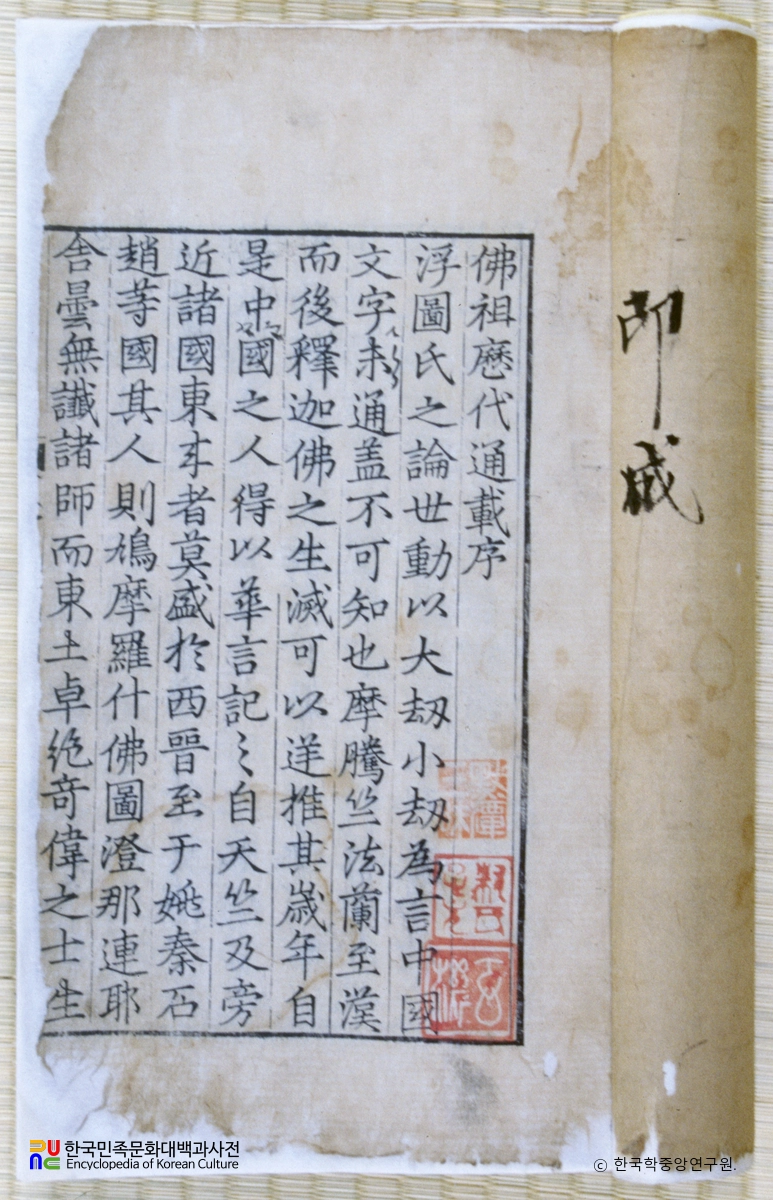 佛祖歷代通載序
浮圖氏之論世動以大刼小刼為言中國
文字未通盖不可知也摩騰竺法蘭至漢
而後釋迦佛之生滅可以逆推其歲年自
是中國之人得以華言記之自天竺及旁
近諸國東来者莫盛於西晉至于姚秦石
趙等國其人則鳩摩羅什佛圖澄那連耶
舍曇無讖諸師而東土卓絶奇偉之士生
即戒
한국민족문화대백과사전
Encyclopedia of Korean Culture
© 한국학중앙연구원.